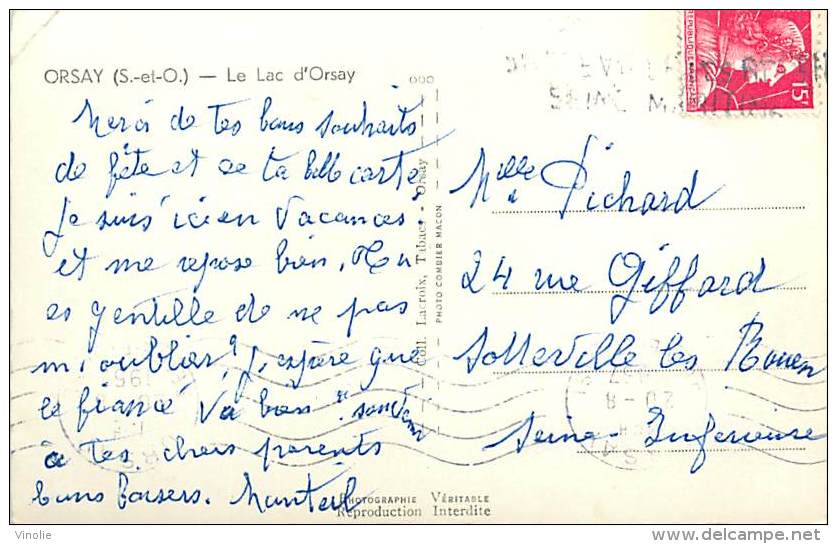 ORSAY (S.-et-O.) — Le Lac d'Orsay
Merci de tes bons souhaits
de fête et de ta belle carte.
Je suis ici en vacances
et me repose bien. Tu
es gentille de ne pas
m'oublier. J'espère que
le fiancé va bien. souvenir
à tes chers parents
bons baisers.
Coll. Lacroix, Tabac - Orsay
PHOTO COMBIER MACON
PHOTOGRAPHIE VÉRITABLE
Reproduction Interdite
REPUBLIQUE FRANÇAISE
15F
SEINE
Melle Pichard
24 rue Giffard
Sotteville les Rouen
Seine Inférieure
20-8
Vinolie
www.delcampe.net